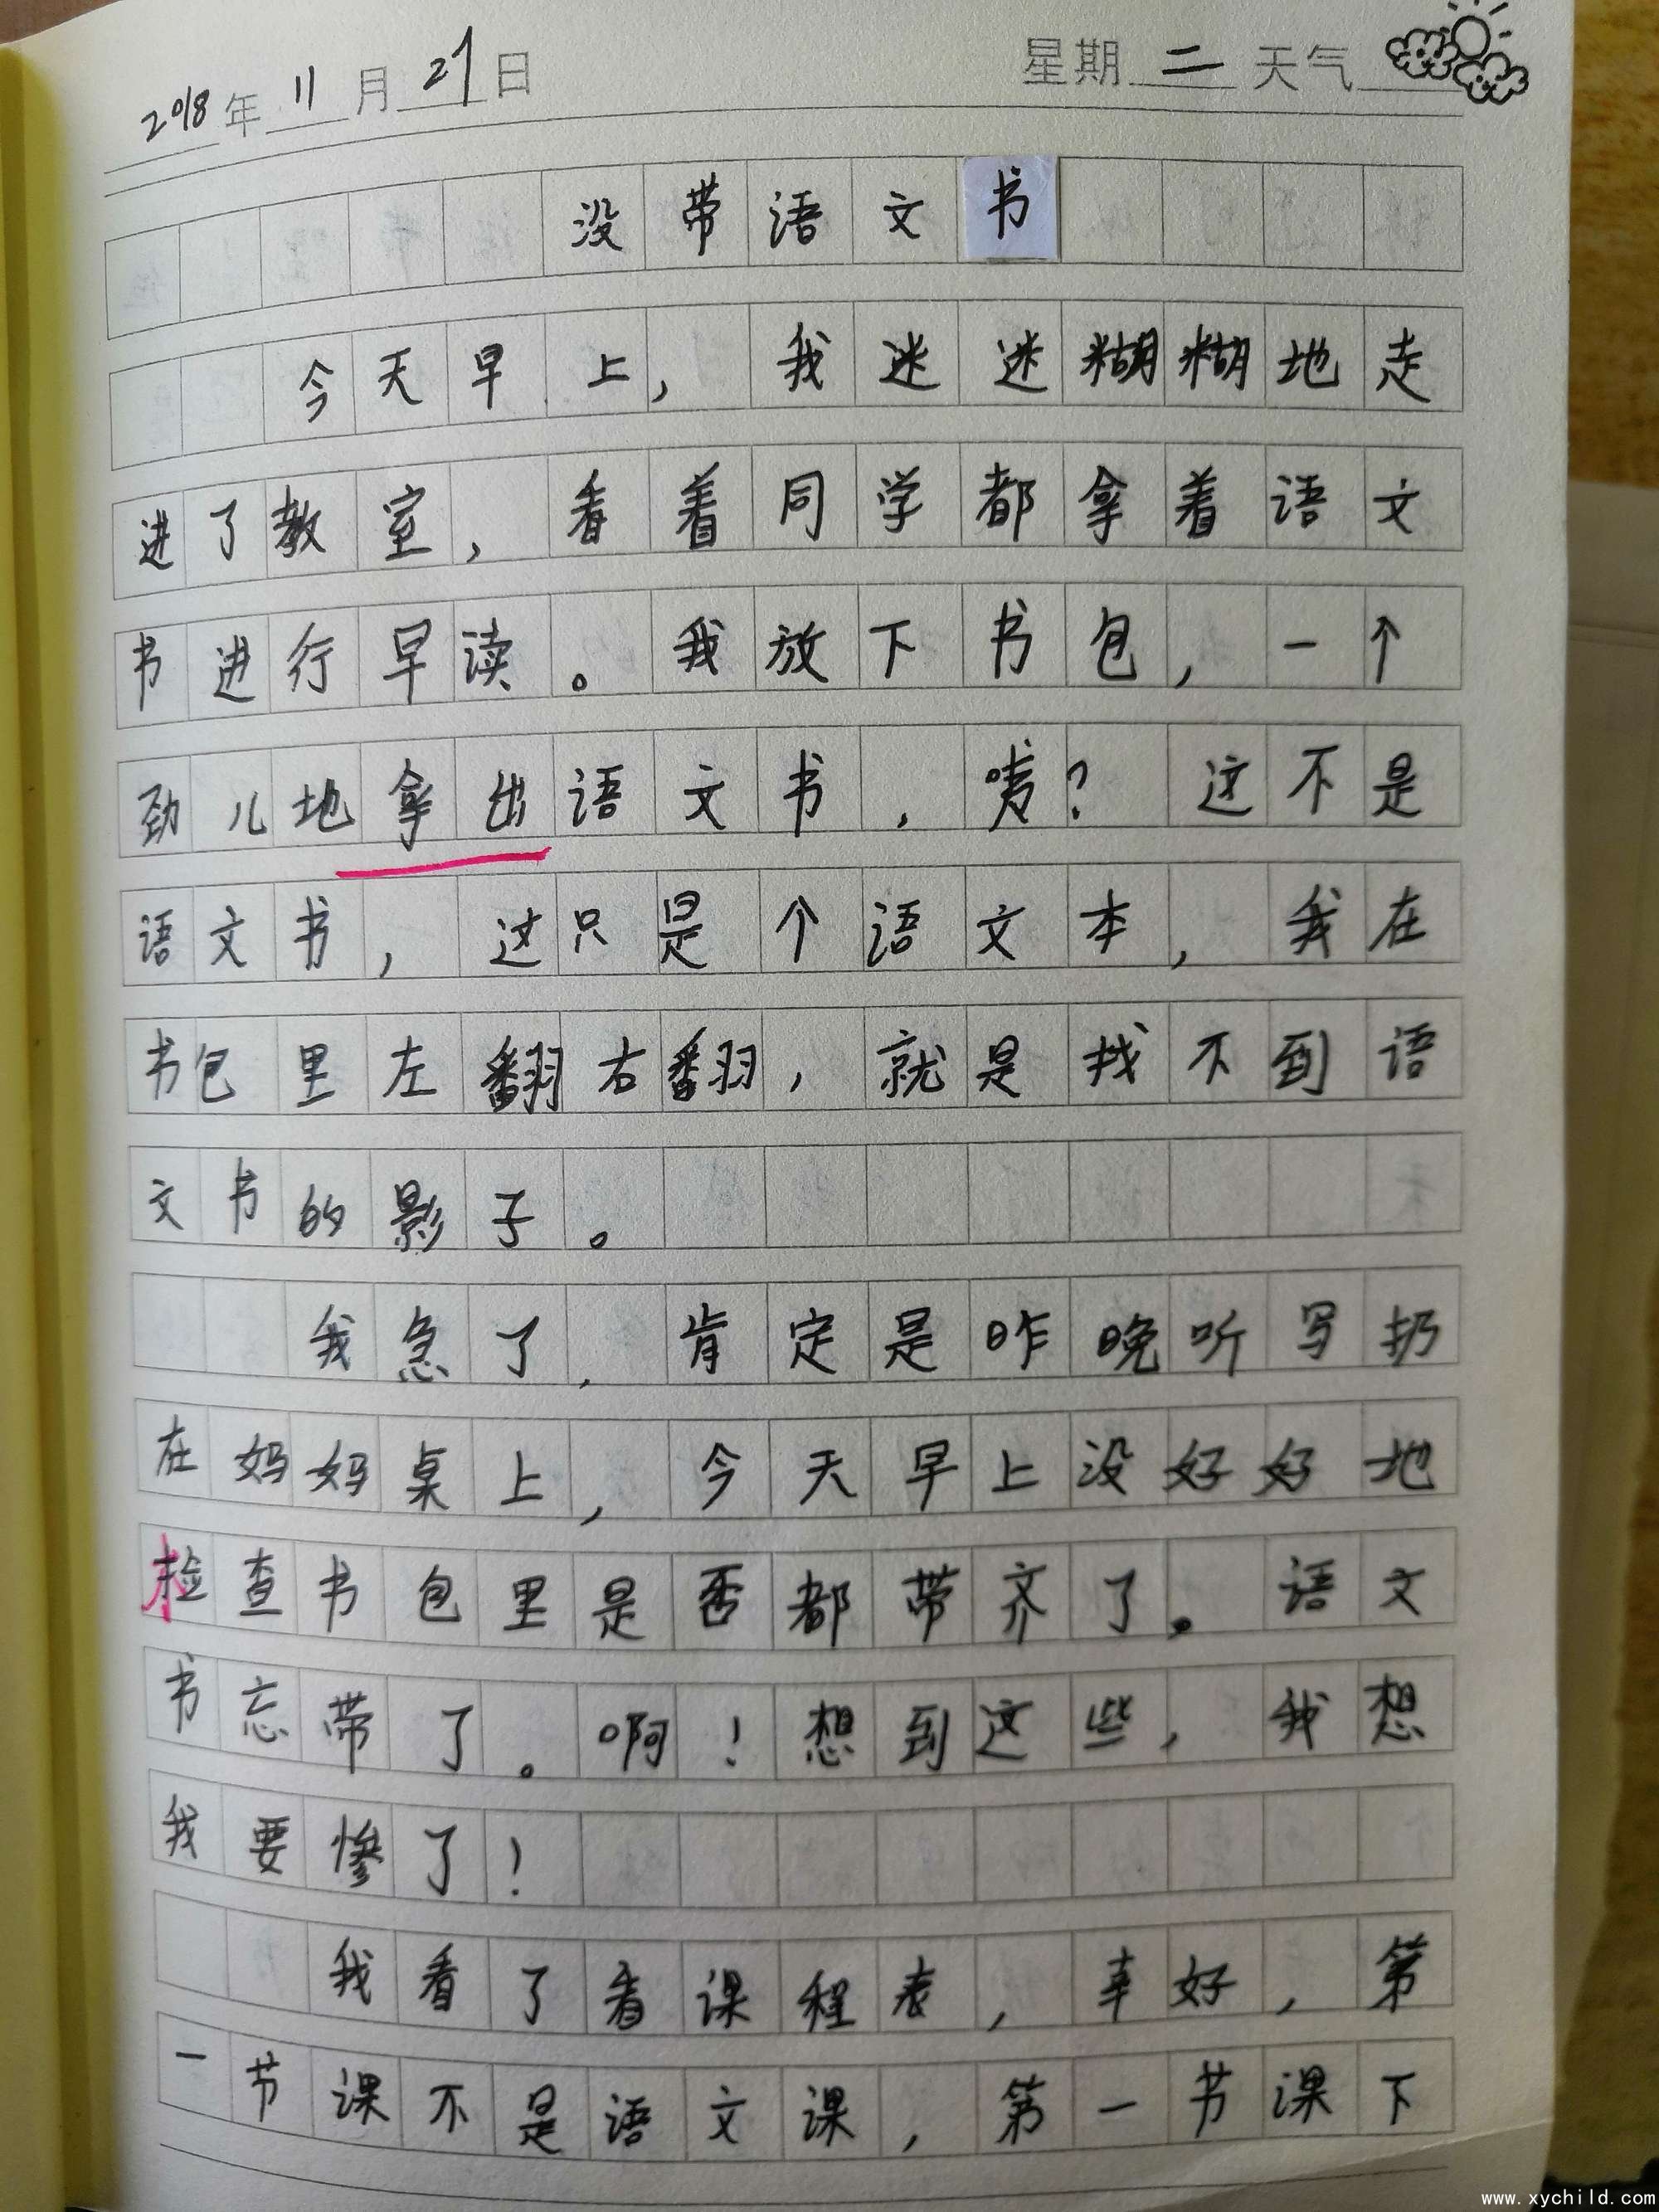 2018年 11 月 27 日 星期 二 天气
没带语文书
今天早上,我迷迷糊糊地走
进了教室,看着同学都拿着语文
书进行早读。我放下书包,一个
劲儿地拿出语文书,咦?这不是
语文书,这只是个语文本,我在
书包里左翻右翻,就是找不到语
文书的影子。
我急了,肯定是昨晚听写扔
在妈妈桌上,今天早上没好好地
检查书包里是否都带齐了。语文
书忘带了。啊!想到这些,我想
我要惨了!
我看了看课程表,幸好,第
一节课不是语文课,第一节课下
www.xychild.com